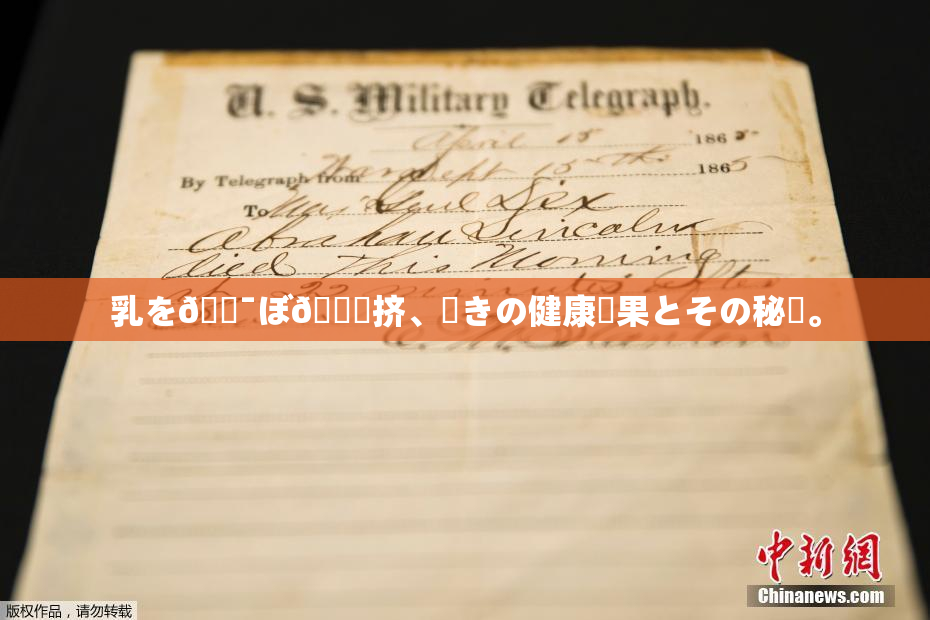 U. S. Military Telegraph.
April 15 1865
By Telegraph from War Dept 15th 1865
To Maj Genl Dix
Abraham Lincoln
died This Morning
at 22 minutes after
乳をð¯ぼð挤、きの健康果とその秘。
E. M. Stanton
中新网
Chinanews.com
版权作品，请勿转载